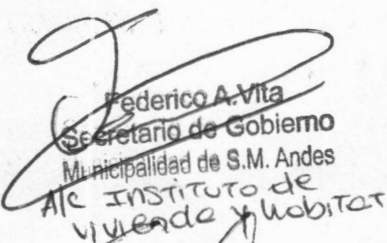 Federico A. Vita
Secretario de Gobierno
Municipalidad de S.M. Andes
A/c INSTITUTO de
VIVIENDA Y HABITAT